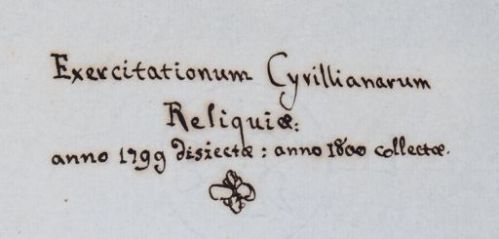 Exercitationum Cyrillianarum
Reliquiæ:
anno 1799 disiectæ: anno 1800 collectæ.